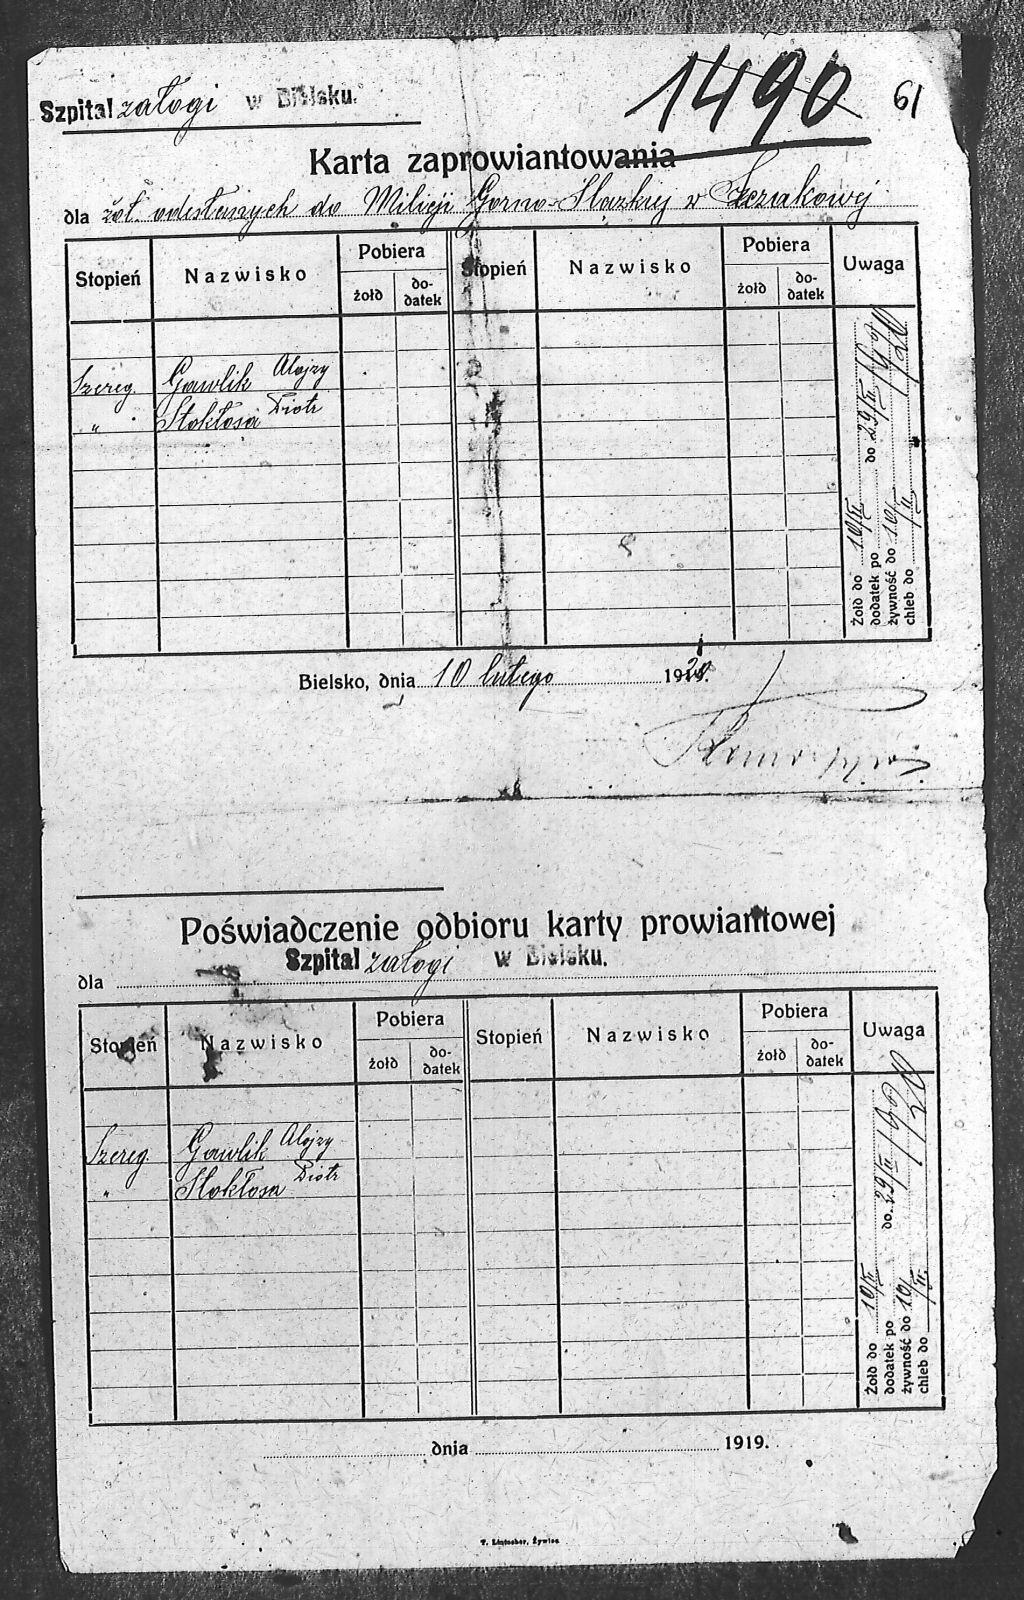 1490
61
Szpital załogi w Bielsku.
Karta zaprowiantowania
dla żoł. odesłanych do Milicji Gorno-Slazkiej w Szczakowej
Stopień Nazwisko Pobiera Stopień Nazwisko Pobiera Uwaga
żołd do-datek żołd do-datek
Szereg. Gawlik Alojzy
" Stokłosa Piotr
Żołd do 10/II do 29/II 1920
dodatek po
żywność do 10/II 1920
chleb do
Bielsko, dnia 10 lutego 1920.
Poświadczenie odbioru karty prowiantowej
Szpital załogi w Bielsku.
dla
Stopień Nazwisko Pobiera Stopień Nazwisko Pobiera Uwaga
żołd do-datek żołd do-datek
Szereg. Gawlik Alojzy
" Stokłosa Piotr
Żołd do 10/II do 29/II 1920
dodatek po
żywność do 10/II 1920
chleb do
dnia 1919.
Żywiec